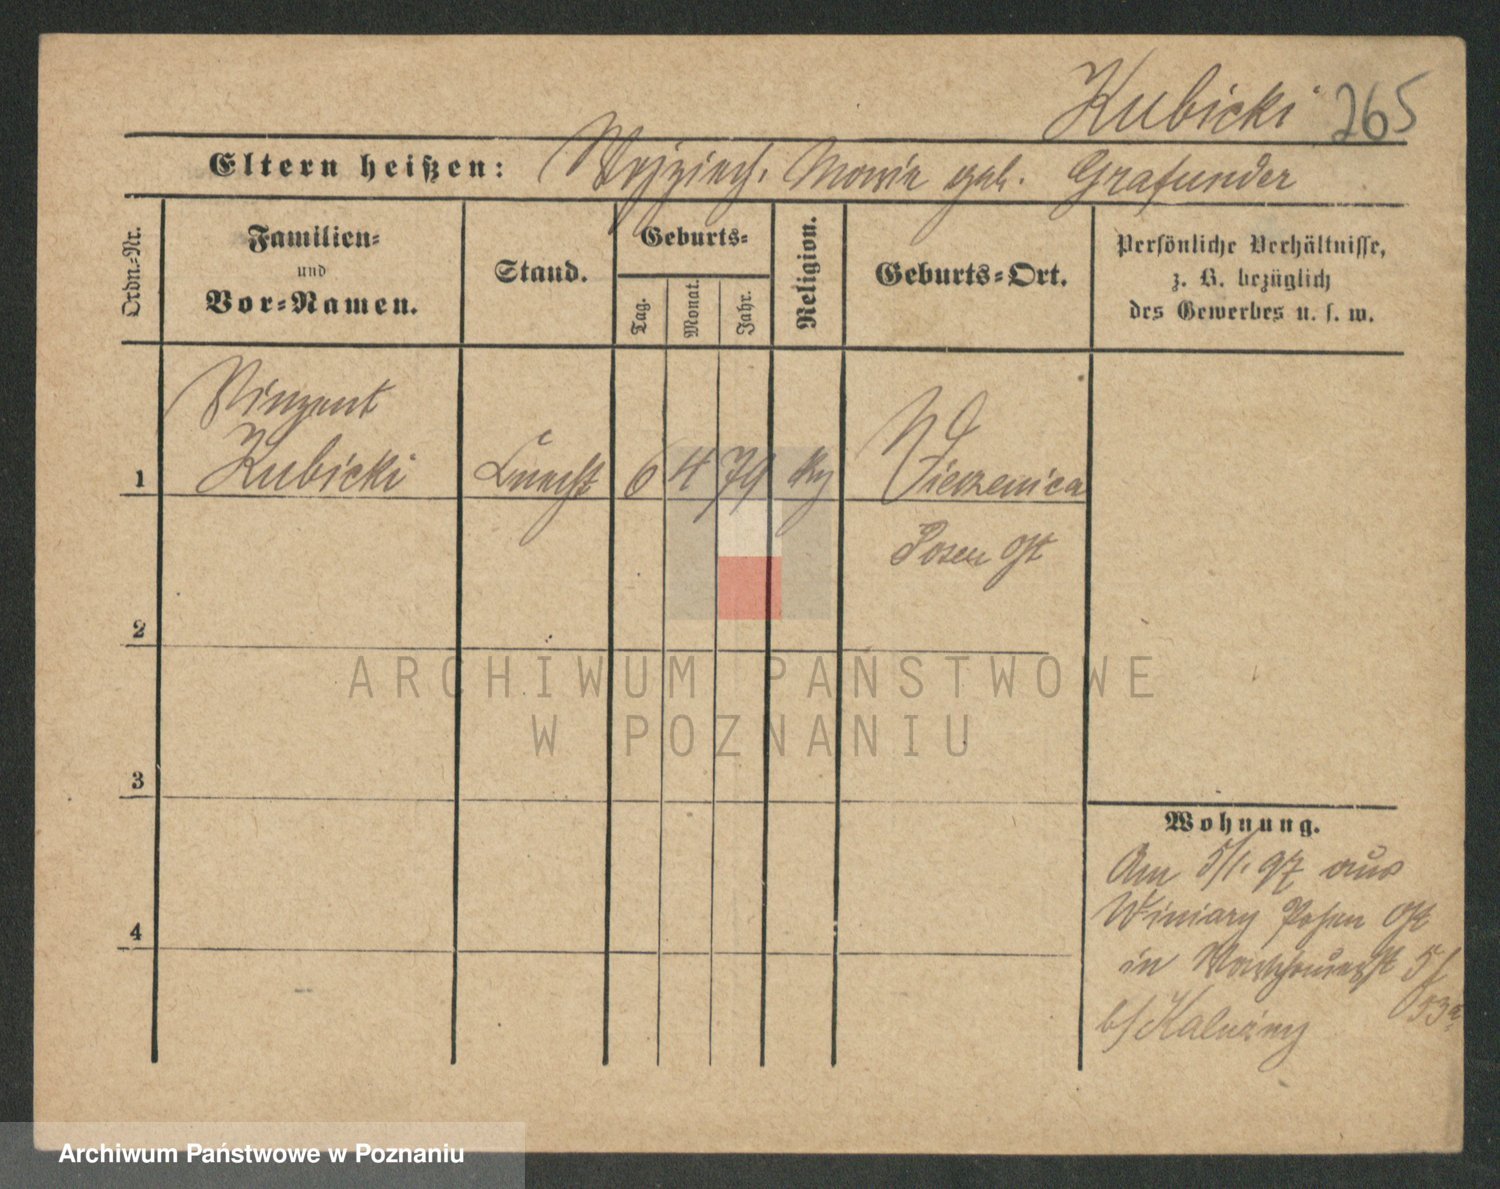 Kubicki 265
Eltern heißen: Woyziech. Maria geb. Grafunder
Ordn.-Nr.
Familien-
und
Vor-Namen.
Stand.
Geburts-
Tag.
Monat.
Jahr.
Religion.
Geburts-Ort.
Persönliche Verhältnisse,
z. B. bezüglich
des Gewerbes u. s. w.
Vinzent
Kubicki
1
Knecht
6
4
79
Posen Ost
2
3
4
Wohnung.
Am 5/1. 97 aus
Winiary Posen Ost
in
b/ Kaluzny
ARCHIWUM PAŃSTWOWE
W POZNANIU
Archiwum Państwowe w Poznaniu